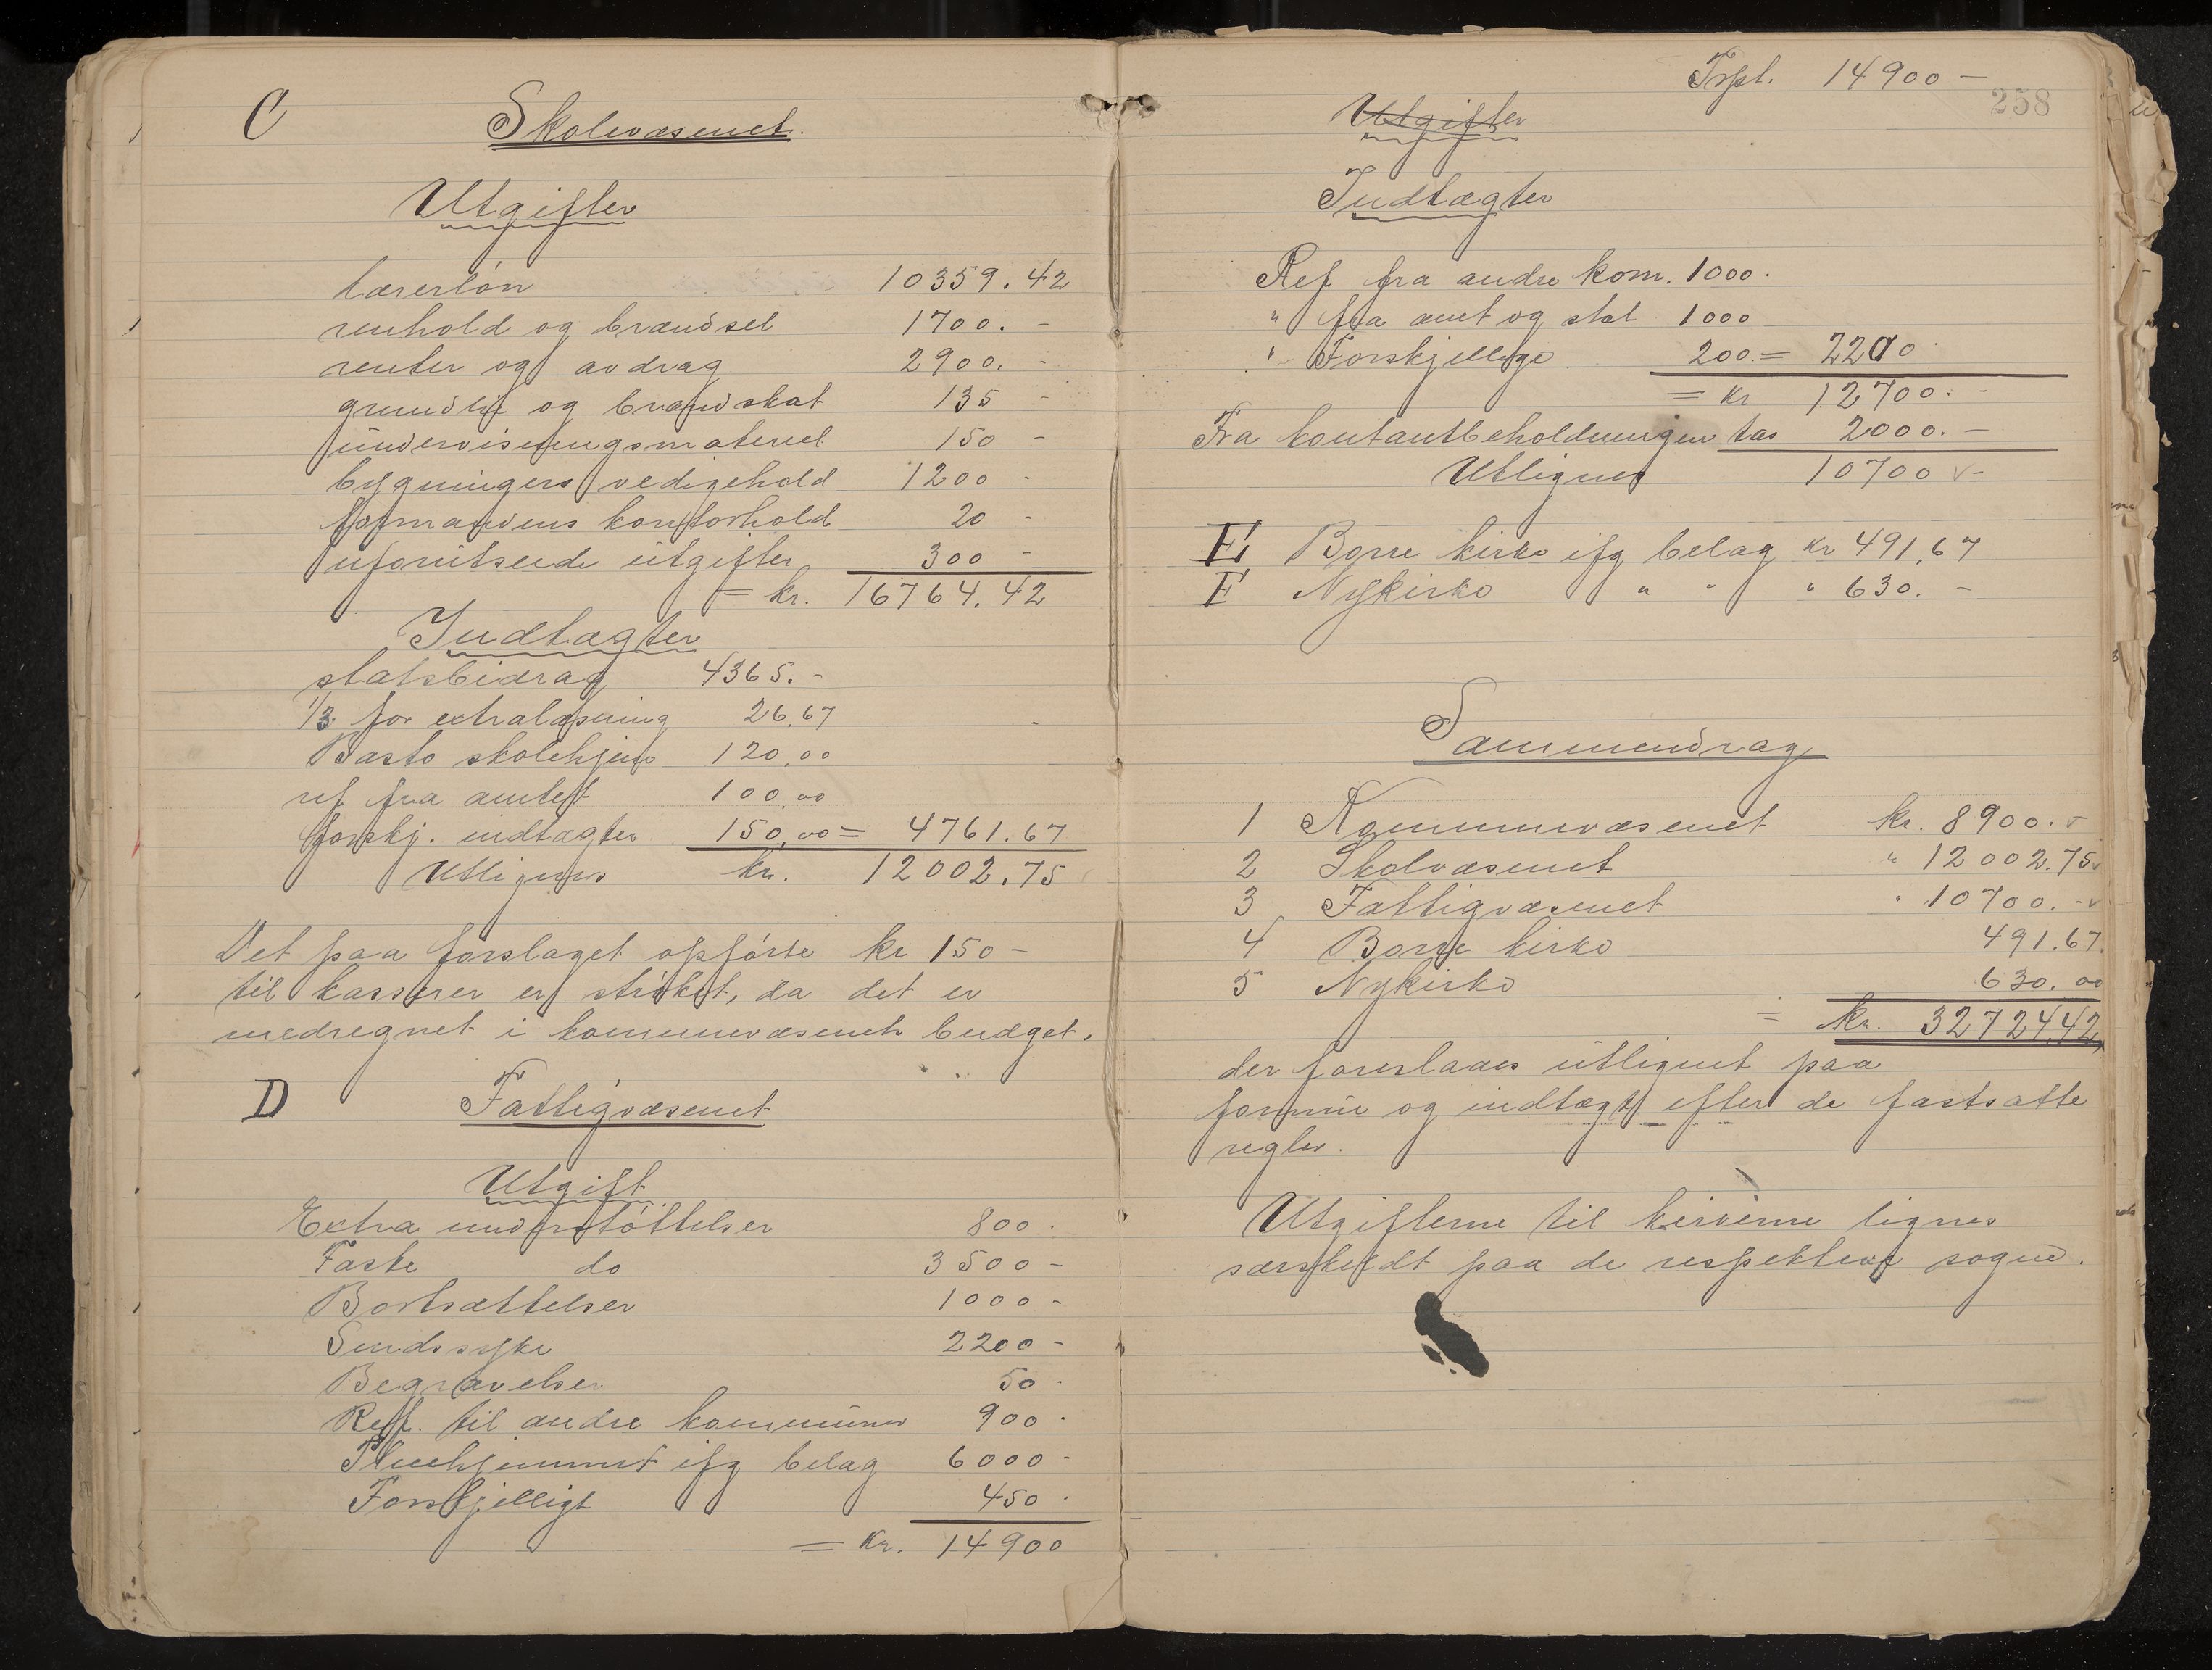 C Skolevæsenet.
Utgifter
Lærerløn 10359.42
renhold og brændsel 1700.-
renter og avdrag 2900.-
grundleie og brandskat 135 -
undervisningsmateriel 150 -
bygningers vedligehold 1200 -
formandens kontorhold 20 -
uforutseede utgifter 300 -
= kr. 16764.42
Indtægter
statsbidrag 4365.-
1/3 for extralæsning 26.67
Basto skolehjem 120.00
ref fra amtet 100.00
forskj. indtægter 150.00 = 4761.67
Utlignes kr. 12002.75
Det paa forslaget opførte kr 150 -
til kasserer er strøket, da det er
medregnet i kommunevæsenets budget.
D Fattigvæsenet
Utgift
Extra understøttelser 800 -
Faste do 3500 -
Bortsættelser 1000 -
Sindssyke 2200 -
Begravelser 50 -
Ref. til andre kommuner 900 -
Pleiehjemmet ifg belag 6000 -
Forskjelligt 450 -
= Kr. 14900
Trpt. 14900 -
258
Utgifter
Indtægter
Ref fra andre kom. 1000.
" fra amt og stat 1000
" Forskjellige 200. = 2200
= kr 12700.-
Fra kontantbeholdningen tas 2000.-
Utlignes 10700 -
E Borre kirke ifg belag kr 491.67
F Nykirke " " " 630. -
Sammendrag
1 Kommunevæsenet kr. 8900.-
2 Skolvæsenet " 12002.75
3 Fattigvæsenet " 10700.-
4 Borre kirke 491.67
5 Nykirke 630.00
= kr. 32724.42
der foreslaaes utlignet paa
formue og indtægt efter de fastsatte
regler.
Utgifterne til kirkerne lignes
særskildt paa de respektive sogne.